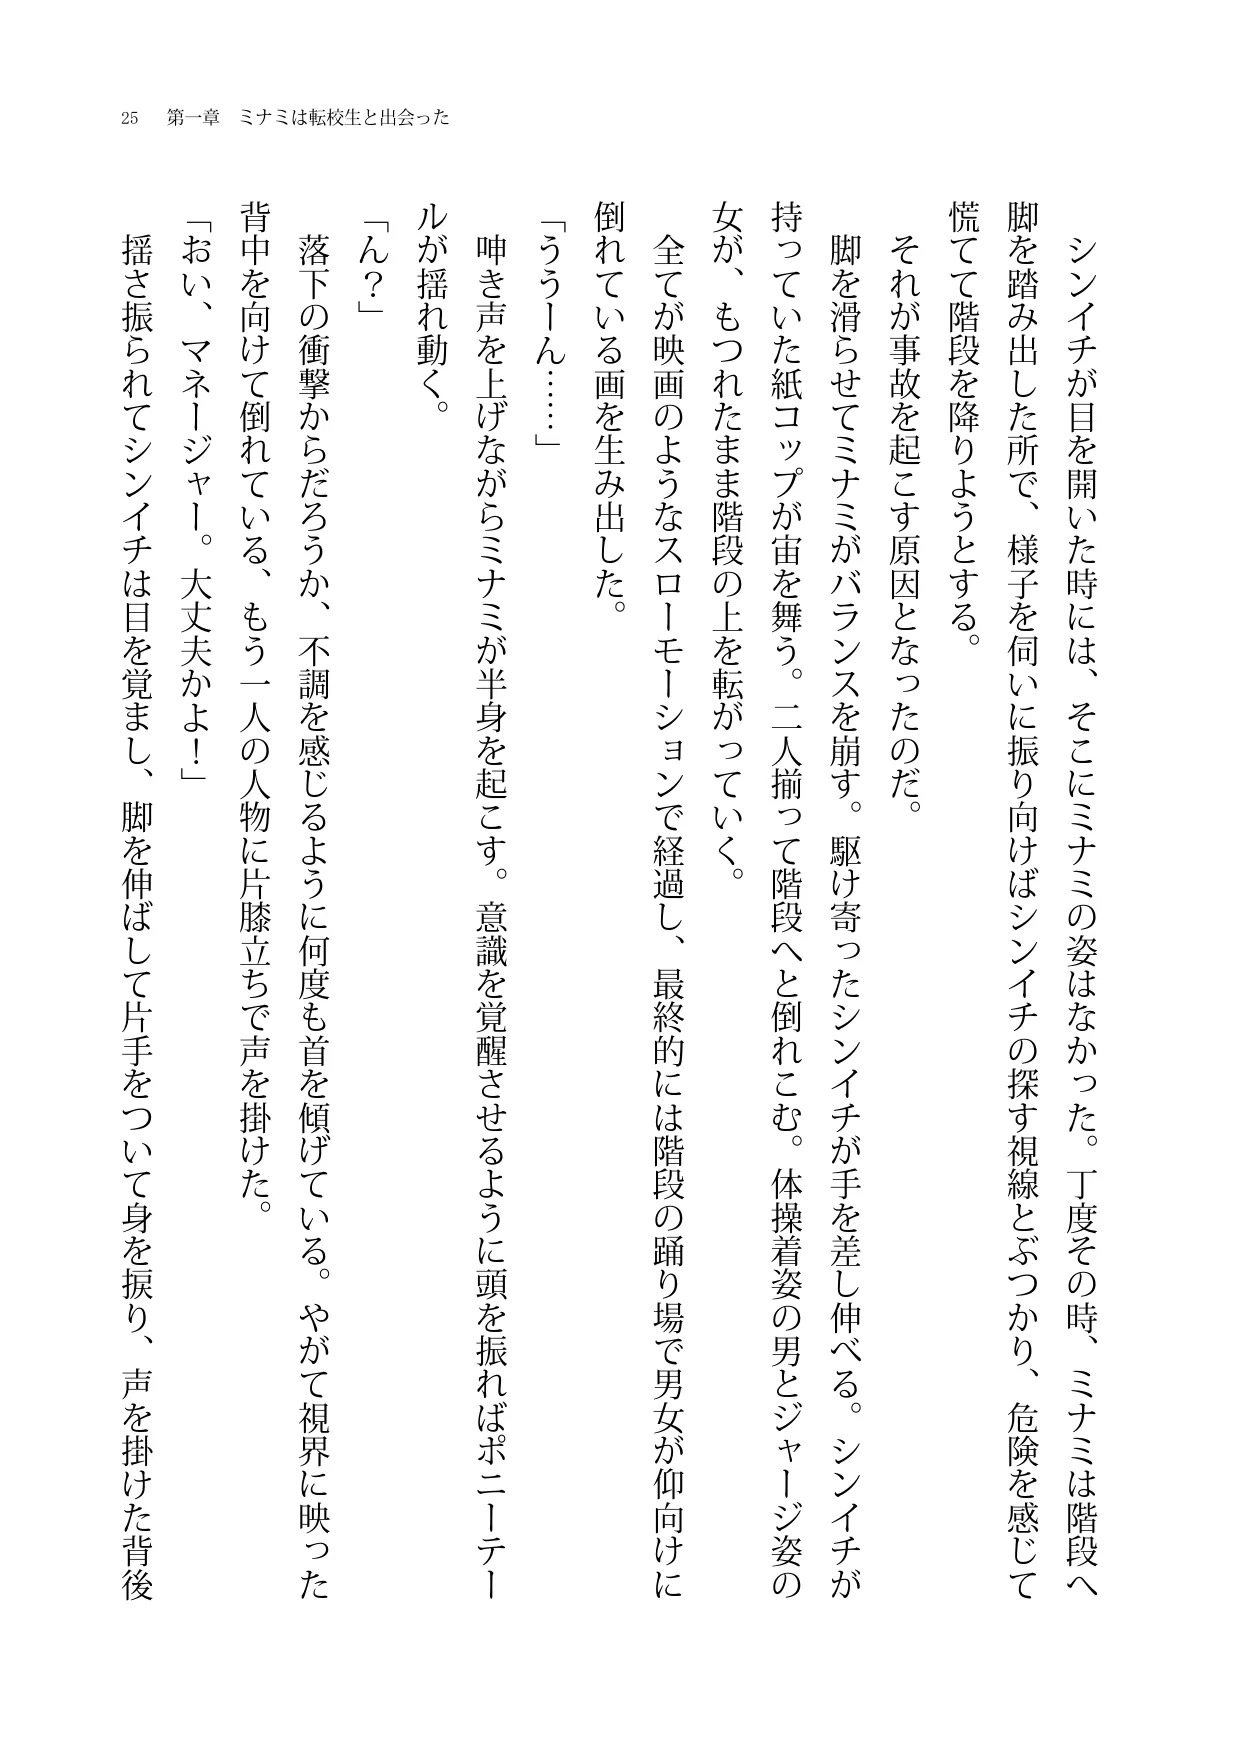 25　第一章　ミナミは転校生と出会った
　シンイチが目を開いた時には、そこにミナミの姿はなかった。丁度その時、ミナミは階段へ
脚を踏み出した所で、様子を伺いに振り向けばシンイチの探す視線とぶつかり、危険を感じて
慌てて階段を降りようとする。
　それが事故を起こす原因となったのだ。
　脚を滑らせてミナミがバランスを崩す。駆け寄ったシンイチが手を差し伸べる。シンイチが
持っていた紙コップが宙を舞う。二人揃って階段へと倒れこむ。体操着姿の男とジャージ姿の
女が、もつれたまま階段の上を転がっていく。
　全てが映画のようなスローモーションで経過し、最終的には階段の踊り場で男女が仰向けに
倒れている画を生み出した。
「ううーん……」
　呻き声を上げながらミナミが半身を起こす。意識を覚醒させるように頭を振ればポニーテー
ルが揺れ動く。
「ん？」
　落下の衝撃からだろうか、不調を感じるように何度も首を傾げている。やがて視界に映った
背中を向けて倒れている、もう一人の人物に片膝立ちで声を掛けた。
「おい、マネージャー。大丈夫かよ！」
　揺さ振られてシンイチは目を覚まし、脚を伸ばして片手をついて身を捩り、声を掛けた背後